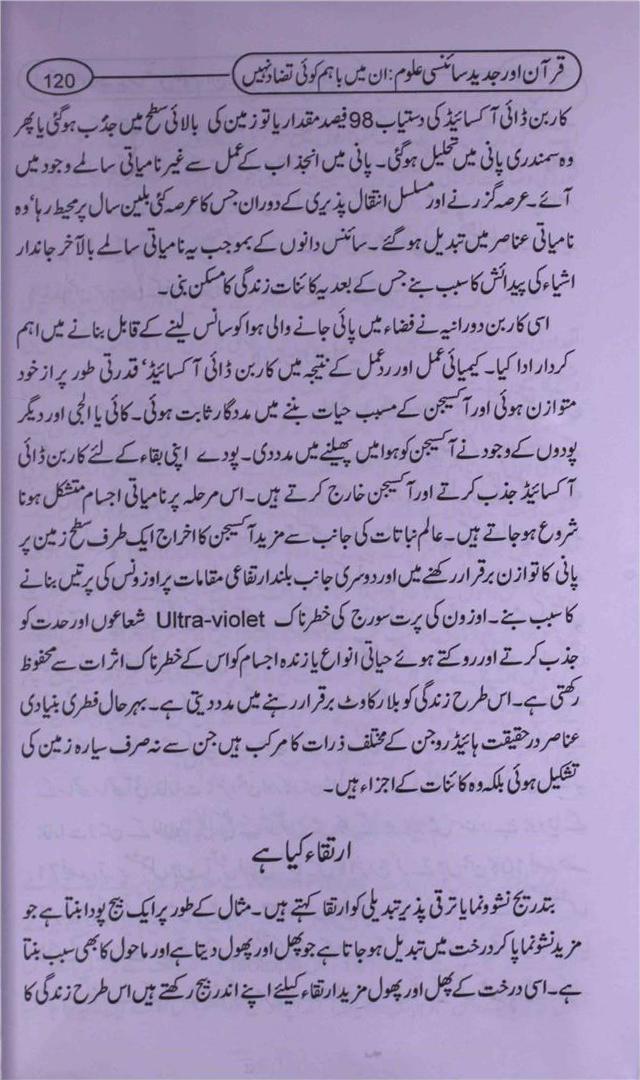 قرآن اور جدید سائنسی علوم: ان میں باہم کوئی تضاد نہیں
120
کاربن ڈائی آکسائیڈ کی دستیاب 98 فیصد مقدار یا تو زمین کی بالائی سطح میں جذب ہوگئی یا پھر
وہ سمندری پانی میں تحلیل ہوگئی۔ پانی میں انجذاب کے عمل سے غیر نامیاتی سالمے وجود میں
آئے۔ عرصہ گزرنے اور مسلسل انتقال پذیری کے دوران جس کا عرصہ کئی بلین سال پر محیط رہا‘ وہ
نامیاتی عناصر میں تبدیل ہوگئے۔ سائنس دانوں کے بموجب یہ نامیاتی سالمے بالآخر جاندار
اشیاء کی پیدائش کا سبب بنے جس کے بعد یہ کائنات زندگی کا مسکن بنی۔
اسی کاربن دورانیہ نے فضاء میں پائی جانے والی ہوا کو سانس لینے کے قابل بنانے میں اہم
کردار ادا کیا۔ کیمیائی عمل اور ردعمل کے نتیجہ میں کاربن ڈائی آکسائیڈ‘ قدرتی طور پر از خود
متوازن ہوئی اور آکسیجن کے مسبب حیات بننے میں مددگار ثابت ہوئی۔ کائی یا الجی اور دیگر
پودوں کے وجود نے آکسیجن کو ہوا میں پھیلنے میں مدد دی۔ پودے اپنی بقاء کے لئے کاربن ڈائی
آکسائیڈ جذب کرتے اور آکسیجن خارج کرتے ہیں۔ اس مرحلہ پر نامیاتی اجسام متشکل ہونا
شروع ہوجاتے ہیں۔ عالم نباتات کی جانب سے مزید آکسیجن کا اخراج ایک طرف سطح زمین پر
پانی کا توازن برقرار رکھنے میں اور دوسری جانب بلند ارتفاعی مقامات پر اوزونس کی پرتیں بنانے
کا سبب بنے۔ اوزون کی پرت سورج کی خطرناک Ultra-violet شعاعوں اور حدت کو
جذب کرتے اور روکتے ہوئے حیاتی انواع یا زندہ اجسام کو اس کے خطرناک اثرات سے محفوظ
رکھتی ہے۔ اس طرح زندگی کو بلا رکاوٹ برقرار رہنے میں مدد دیتی ہے۔ بہرحال فطری بنیادی
عناصر درحقیقت ہائیڈروجن کے مختلف ذرات کا مرکب ہیں‘ جن سے نہ صرف سیارہ زمین کی
تشکیل ہوئی بلکہ وہ کائنات کے اجزاء ہیں۔
ارتقاء کیا ہے
بتدریج نشوونما یا ترقی پذیر تبدیلی کو ارتقا کہتے ہیں۔ مثال کے طور پر ایک بیج پودا بنتا ہے جو
مزید نشوونما پا کر درخت میں تبدیل ہوجاتا ہے جو پھل اور پھول دیتا ہے اور ماحول کا بھی سبب بنتا
ہے۔ اسی درخت کے پھل اور پھول مزید ارتقاء کیلئے اپنے اندر بیج رکھتے ہیں اس طرح زندگی کا